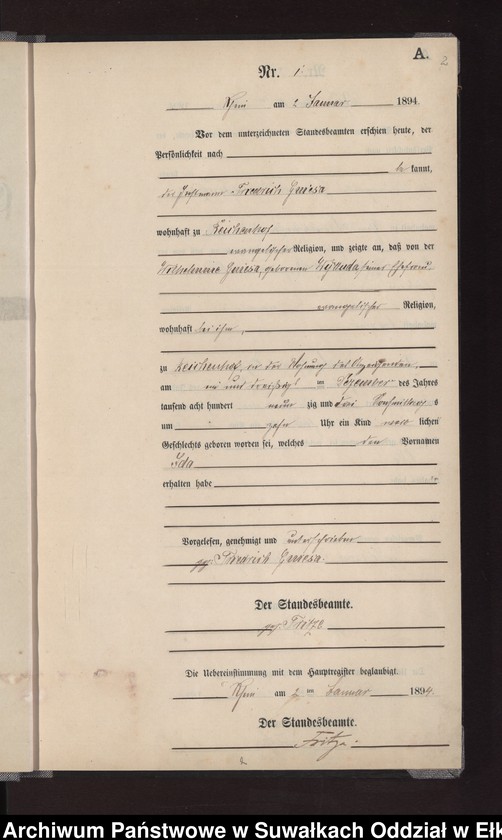 A.
2
Nr. 1
Rhein am 2 Januar 1894
Vor dem unterzeichneten Standesbeamten erschien heute, der
Persönlichkeit nach
be kannt,
der Friedrich
wohnhaft zu Reichenhof
evangelischer Religion, und zeigte an, daß von der
Wilhelmine geborenen seiner Ehefrau
evangelischer Religion,
wohnhaft bei ihm,
zu Reichenhof, in der Wohnung des Anzeigenden,
am ein und dreißigsten Dezember des Jahres
tausend acht hundert neun zig und drei Vormittags
um zehn Uhr ein Kind weib lichen
Geschlechts geboren worden sei, welches den Vornamen
Ida
erhalten habe
Vorgelesen, genehmigt und unterschrieben
gez. Friedrich
Der Standesbeamte.
gez. Fritze
Die Uebereinstimmung mit dem Hauptregister beglaubigt.
Rhein am 2 ten Januar 1894.
Der Standesbeamte.
Fritze
Archiwum Państwowe w Suwałkach Oddział w Ełk